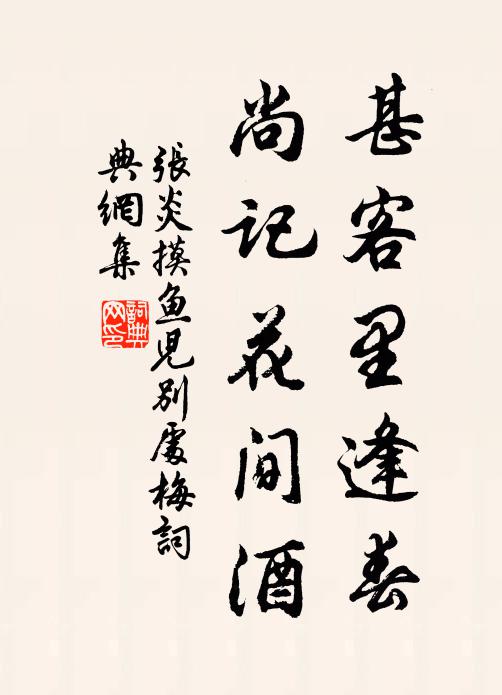 甚客里逢春
尚记花间酒
張炎摸鱼児别處梅詞
典網集
詞典网印